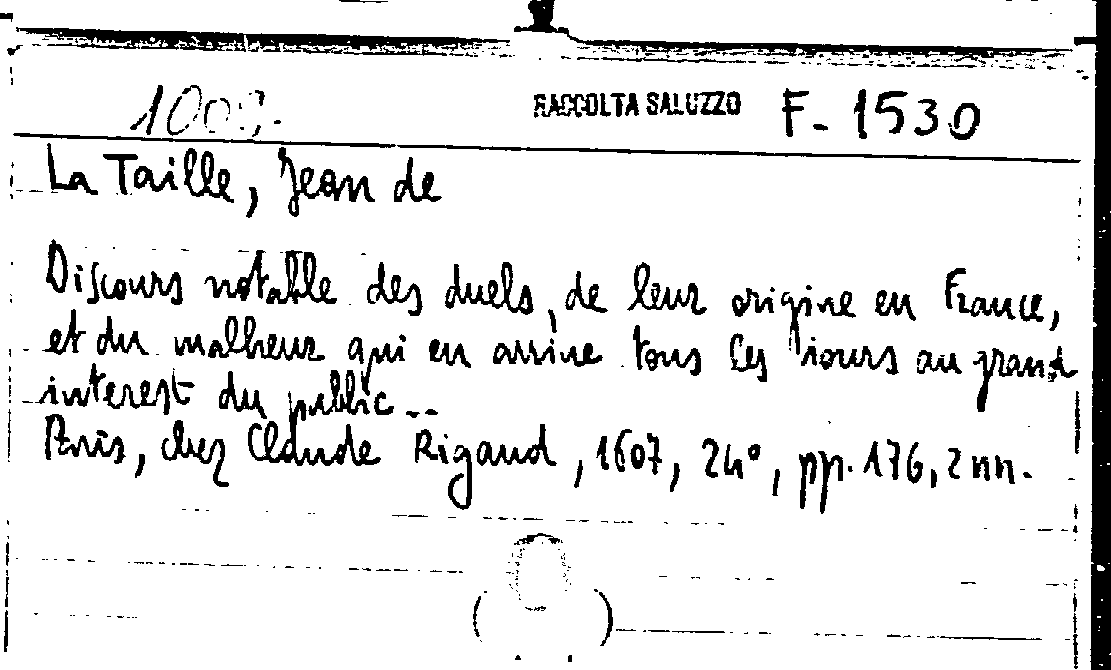 1009. RACCOLTA SALUZZO F. 1530
La Taille, Jean de
Discours notable des duels, de leur origine en France,
et du malheur qui en arrive tous les iours au grand
interest du public..
Paris, chez Claude Rigaud, 1607, 24°, pp. 176, 2 nn.